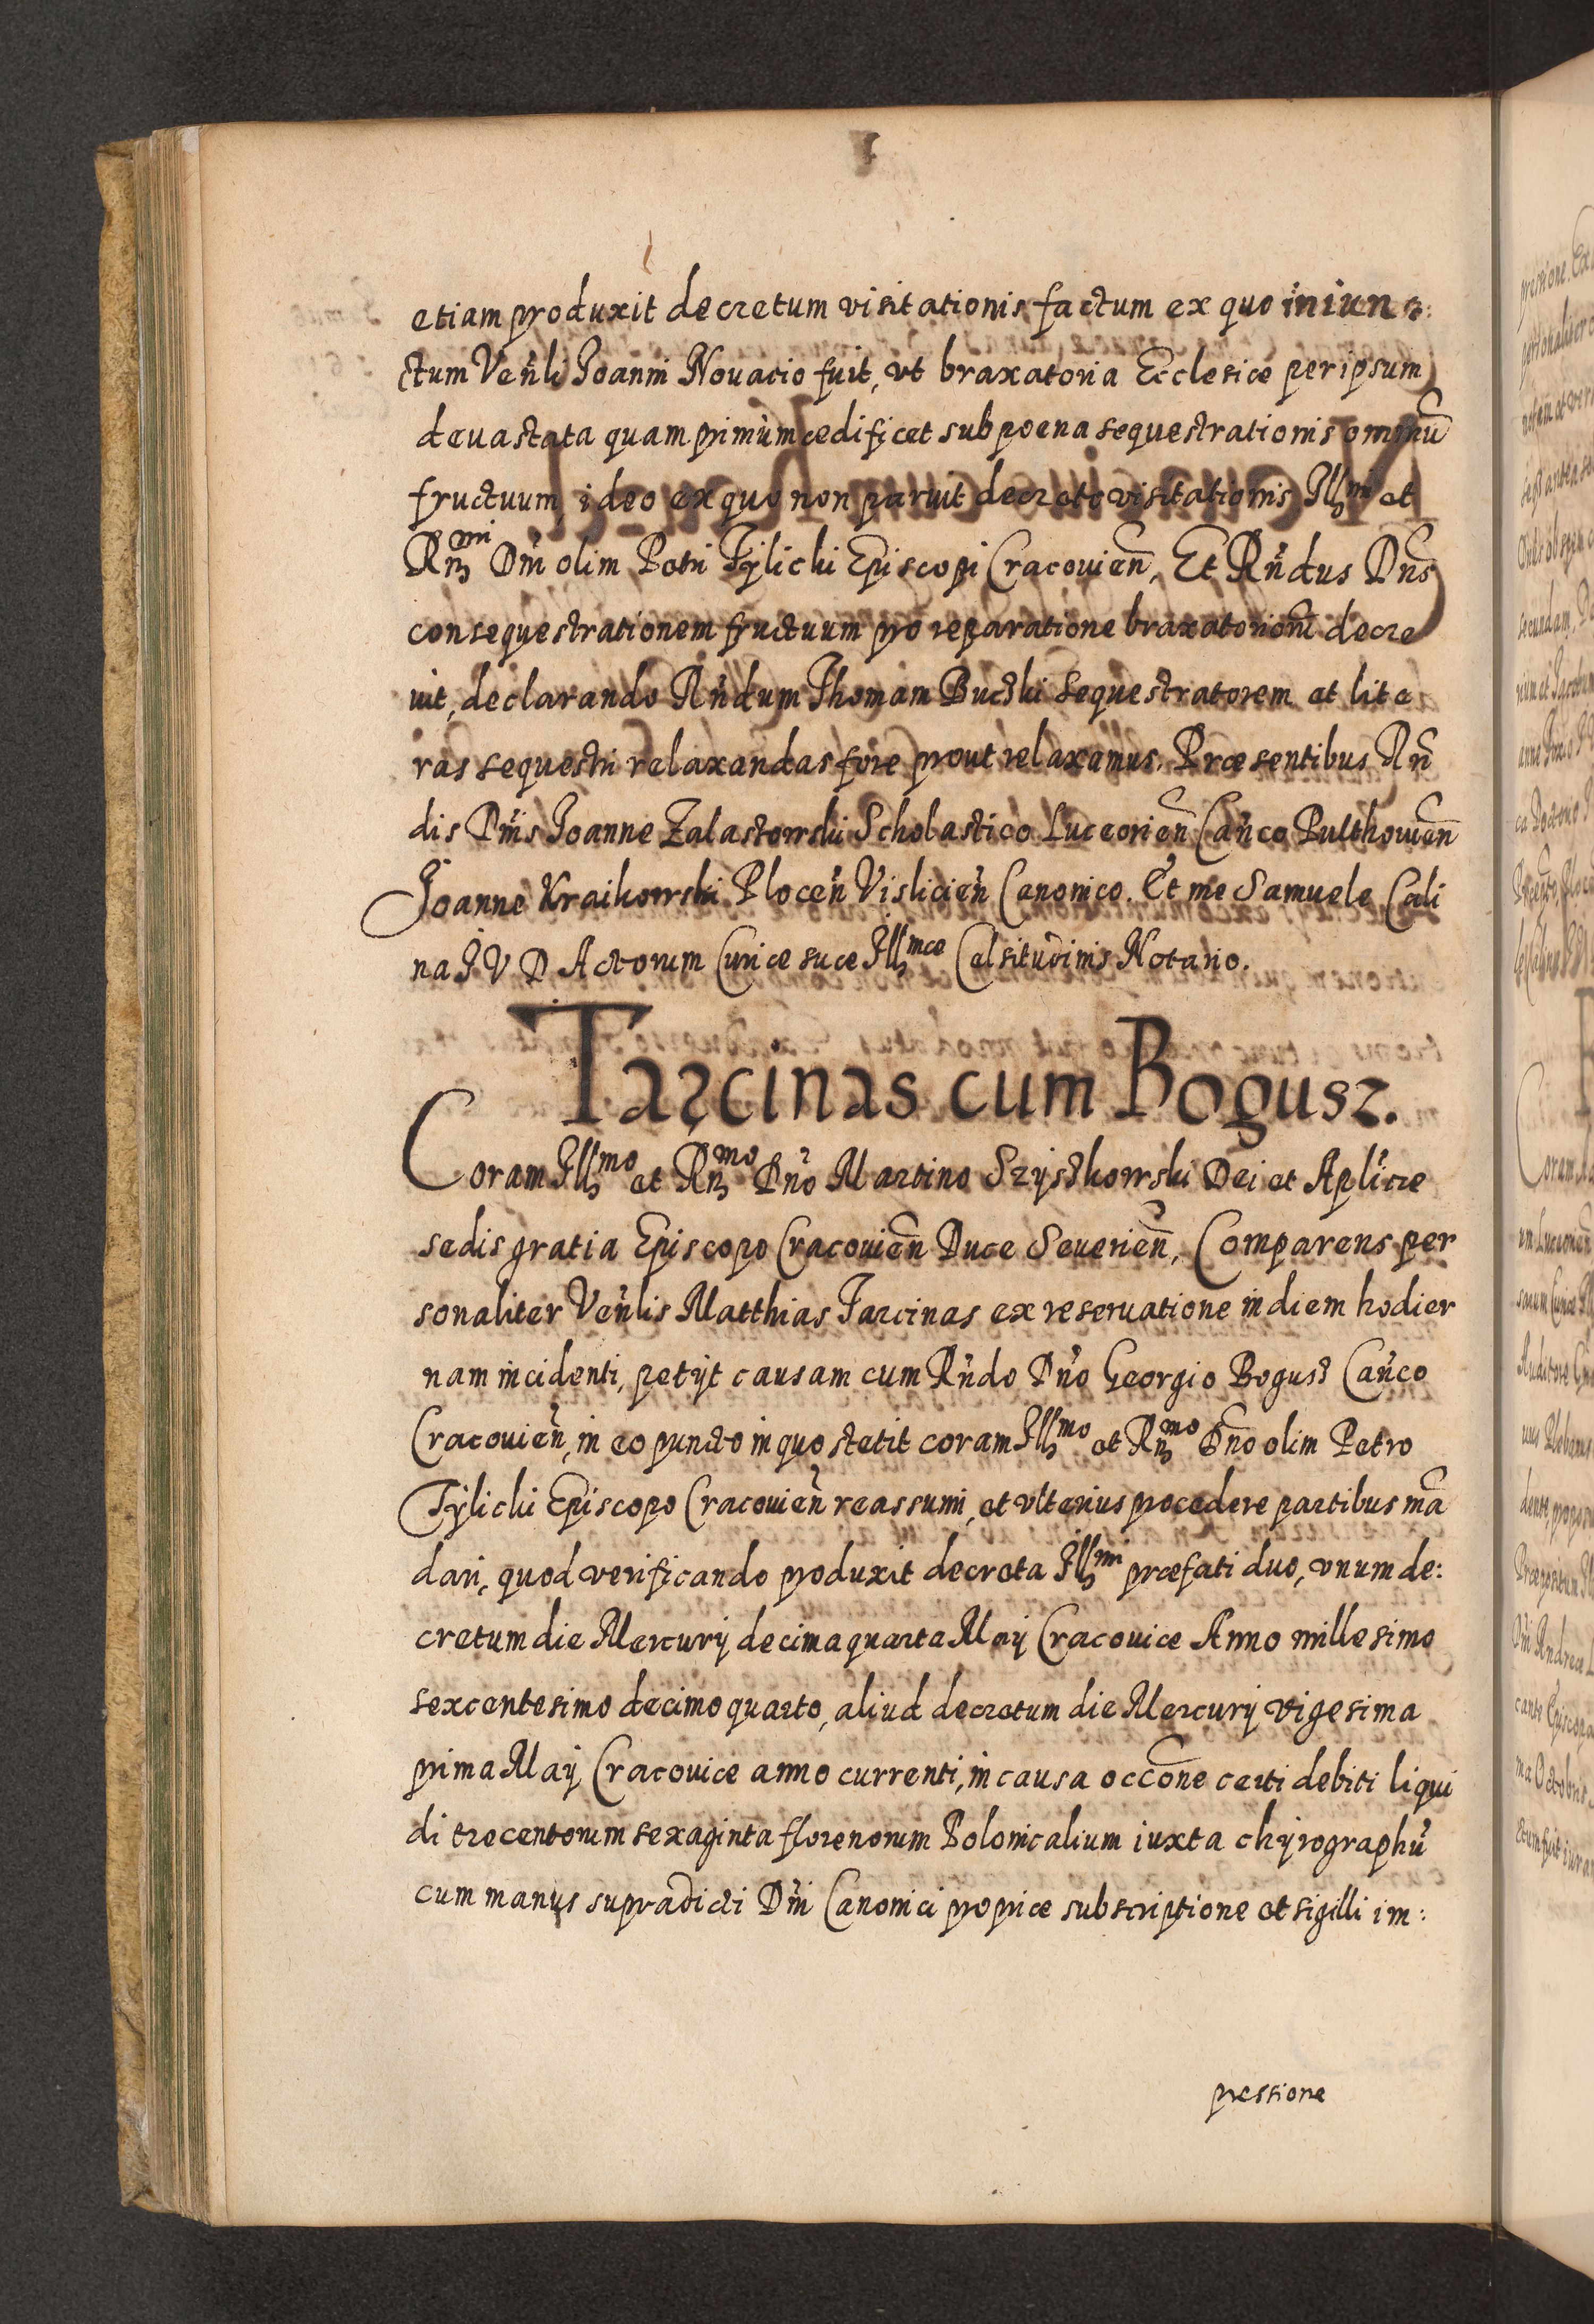 etiam produxit decretum visitationis factum ex quo iniun c:
ctum Venli Joanni Nouacio fuit, vt braxatoria Ecclesiæ per ipsum
deuastata quam primùm ædificet sub poena sequestrationis omniũ
fructuum, ideo ex quo non paruit decreto visitationis Illmi et
Rmi Dni olim Petri Tÿlicki Episcopi Cracouien̄, Et Rndus Dn̄s
consequestrationem fructuum pro reparatione braxatoriorũ decre
uit, declarando Rndum Thomam Buczki sequestratorem et lite
ras sequestri relaxandas fore prout relaxamus. Præsentibus Rn̄
dis Dnis Joanne Zalastowski Scholastico Luceorien̄ Canco Pulthouien̄
Joanne Kraikowski Plocen̄ Vislicien̄ Canonico. Et me Samuele Cali
na J V D Actorum Curiæ suæ Illmæ Celsitudinis Notario.
Tarcinas cum Bogusz.
Coram Illmo et Rmo Dno Martino Szÿszkowski Dei et Aplicæ
sedis gratia Episcopo Cracouien̄ Duce Seuerien̄, Comparens per
sonaliter Venlis Matthias Tarcinas ex reseruatione in diem hodier
nam incidenti, petÿt causam cum Rndo Dno Georgio Bogusz Canco
Cracouien̄, in eo puncto in quo stetit coram Illmo et Rmo Dn̄o olim Petro
Tÿlicki Episcopo Cracouien̄ reassumi, et vlterius procedere partibus mā
dari, quod verificando produxit decreta Illmi præfati duo, vnum de:
cretum die Mercurÿ decima quarta Maÿ Cracouiæ Anno millesimo
sexcentesimo decimo quarto, aliud decretum die Mercurÿ vigesima
prima Maÿ Cracouiæ anno currenti, in causa occōne certi debiti liqui
di trecentorum sexaginta florenorum Polonicalium iuxta chÿrographũ
cum manus supradicti Dni Canonici propriæ subscriptione et sigilli im:
pressione